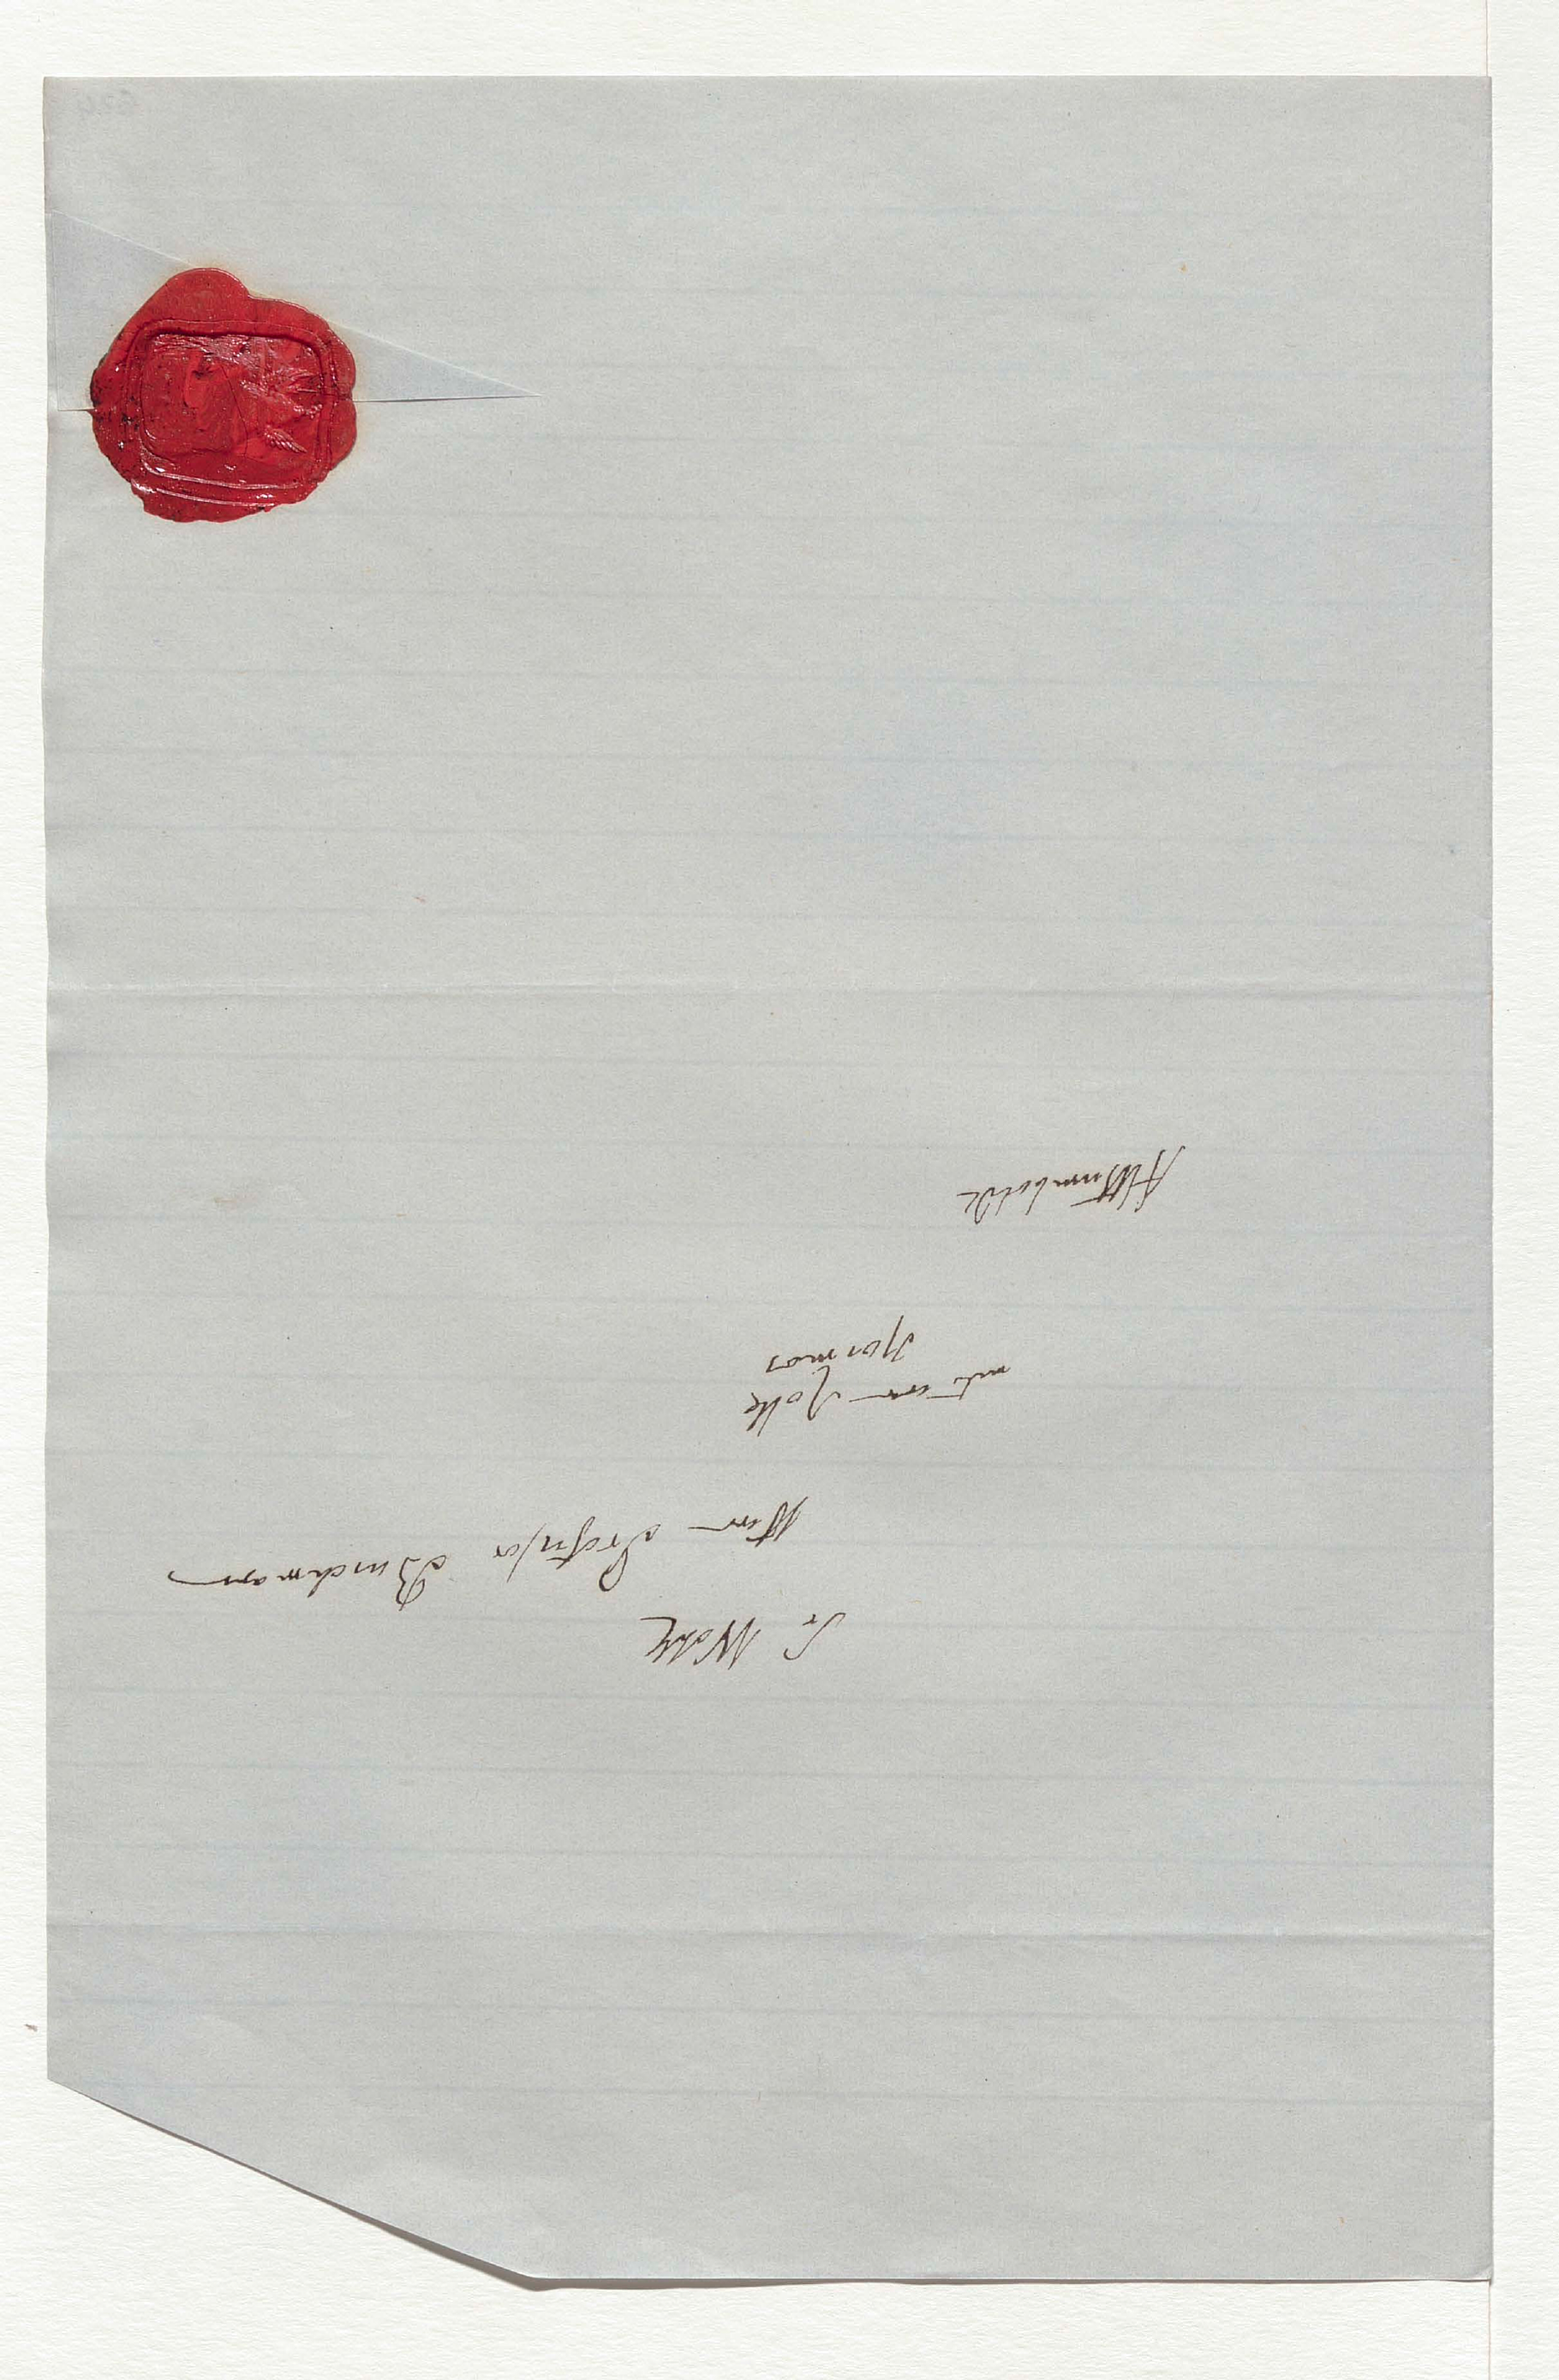 Sr Wohlg
Herrn Professor Buschmann
mit einer Rolle
Kosmos
AlHumboldt